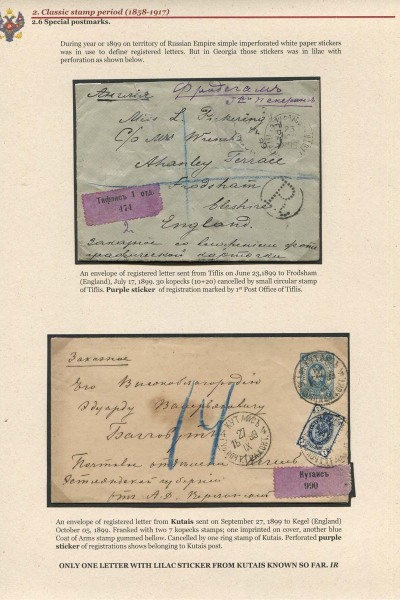 2. Classic stamp period (1858-1917)
2.6 Special postmarks.
During year or 1899 on territory of Russian Empire simple imperforated white paper stickers
was in use to define registered letters. But in Georgia those stickers was in lilac with
perforation as shown below.
Англія
Miss L Pickering
c/o Mrs
Terrace
Frodsham
Cheshire
England
Тифлисъ 1 отд.
474
2
R
Заказное со
An envelope of registered letter sent from Tiflis on June 23,1899 to Frodsham
(England), July 17, 1899. 30 kopecks (10+20) cancelled by small circular stamp
of Tiflis. Purple sticker of registration marked by 1st Post Office of Tiflis.
Заказное
Его Высокоблагородію
Эдуарду
14
КУТАИСЪ
27
IX
Почтовое
Эстляндской губерніи
Кутаисъ
990
An envelope of registered letter from Kutais sent on September 27, 1899 to Kegel (England)
October 05, 1899. Franked with two 7 kopecks stamps; one imprinted on cover, another blue
Coat of Arms stamp gummed bellow. Cancelled by one ring stamp of Kutais. Perforated purple
sticker of registrations shows belonging to Kutais post.
ONLY ONE LETTER WITH LILAC STICKER FROM KUTAIS KNOWN SO FAR. IR